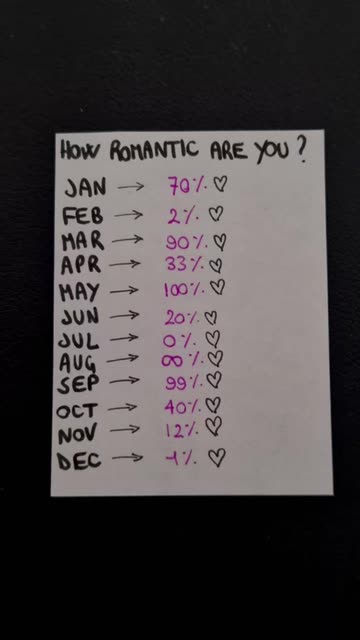 HOW ROMANTIC ARE YOU?
JAN → 70% ♡
FEB → 2% ♡
MAR → 90% ♡
APR → 33% ♡
MAY → 100% ♡
JUN → 20% ♡
JUL → 0% ♡
AUG → ∞% ♡
SEP → 99% ♡
OCT → 40% ♡
NOV → 12% ♡
DEC → -1% ♡